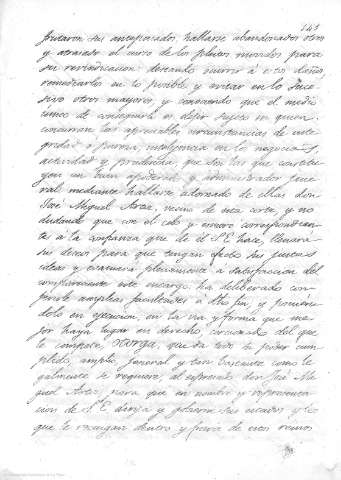 143
frutaron sus antepasados, hallarse abandonados otros
y atrasado el curso de los pleitos movidos para
su reivindicacion: deseando ocurrir á estos daños,
remediarlos en lo posible y evitar en lo suce-
sivo otros mayores, y conociendo que el medio
único de conseguirlo es elegir sujeto en quien
concurran las apreciables circunstancias de inte-
gridad ó pureza, inteligencia en los negocios,
actividad y prudencia, que son las que constitu-
yen un buen apoderado y administrador gene-
ral mediante hallarse adornado de ellas don
José Miguel Arte, vecino de esta corte, y no
dudando que con el celo y esmero correspondien-
te á la confianza que de él S.E. hace, llenara
sus deseos para que tengan efecto sus justas
ideas y evacuará plenamente á satisfaccion del
compareciente este encargo: ha deliberado con-
ferirle amplias facultades á dho fin, y ponien-
dolo en ejecucion, en la via y forma que me-
jor haya lugar en derecho, cerciorado del que
le compete, otorga, que da todo su poder cum-
plido, amplio, general y tan bastante como le-
galmente se requiere, al espresado don José Mi-
guel Arte, para que en nombre y representa-
cion de S.E. dirija y gobierne sus estados y los
que le recaigan dentro y fuera de estos reinos